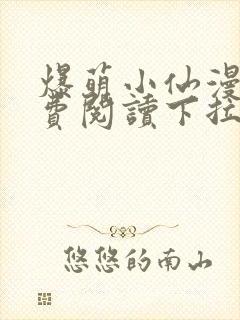 爆萌小仙漫
費閱讀下拉
悠悠的南山